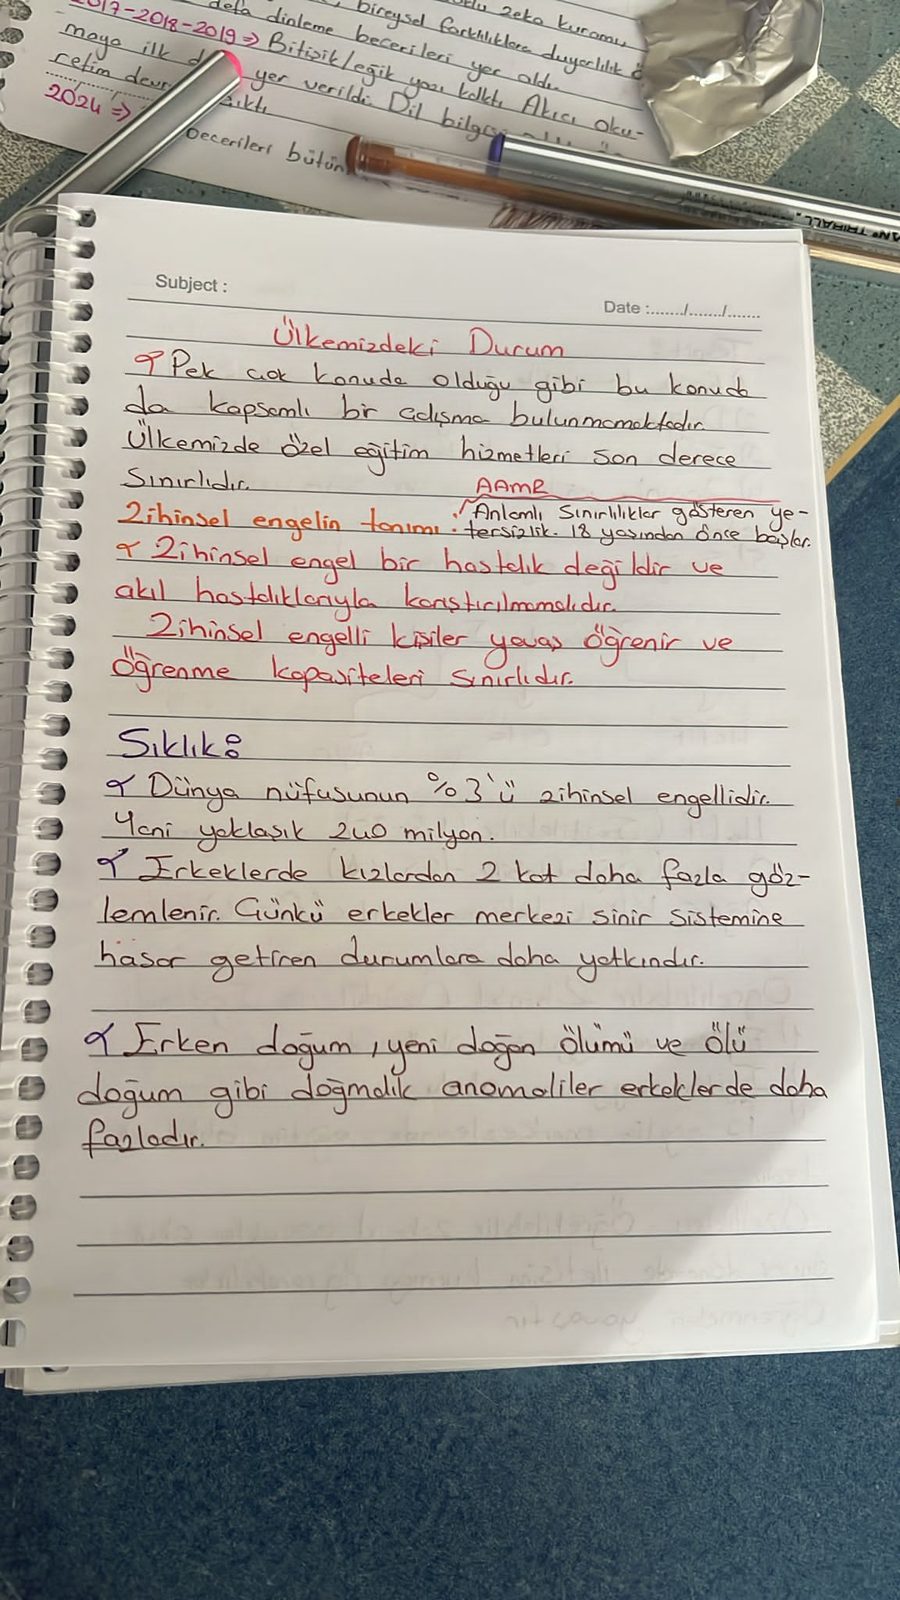 zeka kuramı,
bireysel farklılıklara duyarlılık
2017-2018-2019 => Bitişik/eğik yazı kalktı. Akıcı oku-
defa dinleme becerileri yer aldı.
maya ilk yer verildi. Dil bilgisi
retim
2024 =>
becerileri
Subject :
Date :......./......./.......
Ülkemizdeki Durum
Pek çok konuda olduğu gibi bu konuda
da kapsamlı bir çalışma bulunmamaktadır.
Ülkemizde özel eğitim hizmetleri son derece
sınırlıdır.
AAMR
Anlamlı sınırlılıklar gösteren ye-
Zihinsel engelin tanımı :
tersizlik. 18 yaşından önce başlar.
Zihinsel engel bir hastalık değildir ve
akıl hastalıklarıyla karıştırılmamalıdır.
Zihinsel engelli kişiler yavaş öğrenir ve
öğrenme kapasiteleri sınırlıdır.
Sıklık:
Dünya nüfusunun %3'ü zihinsel engellidir.
Yani yaklaşık 240 milyon.
Erkeklerde kızlardan 2 kat daha fazla göz-
lemlenir. Çünkü erkekler merkezi sinir sistemine
hasar getiren durumlara daha yatkındır.
Erken doğum, yeni doğan ölümü ve ölü
doğum gibi doğmalık anomaliler erkeklerde daha
fazladır.